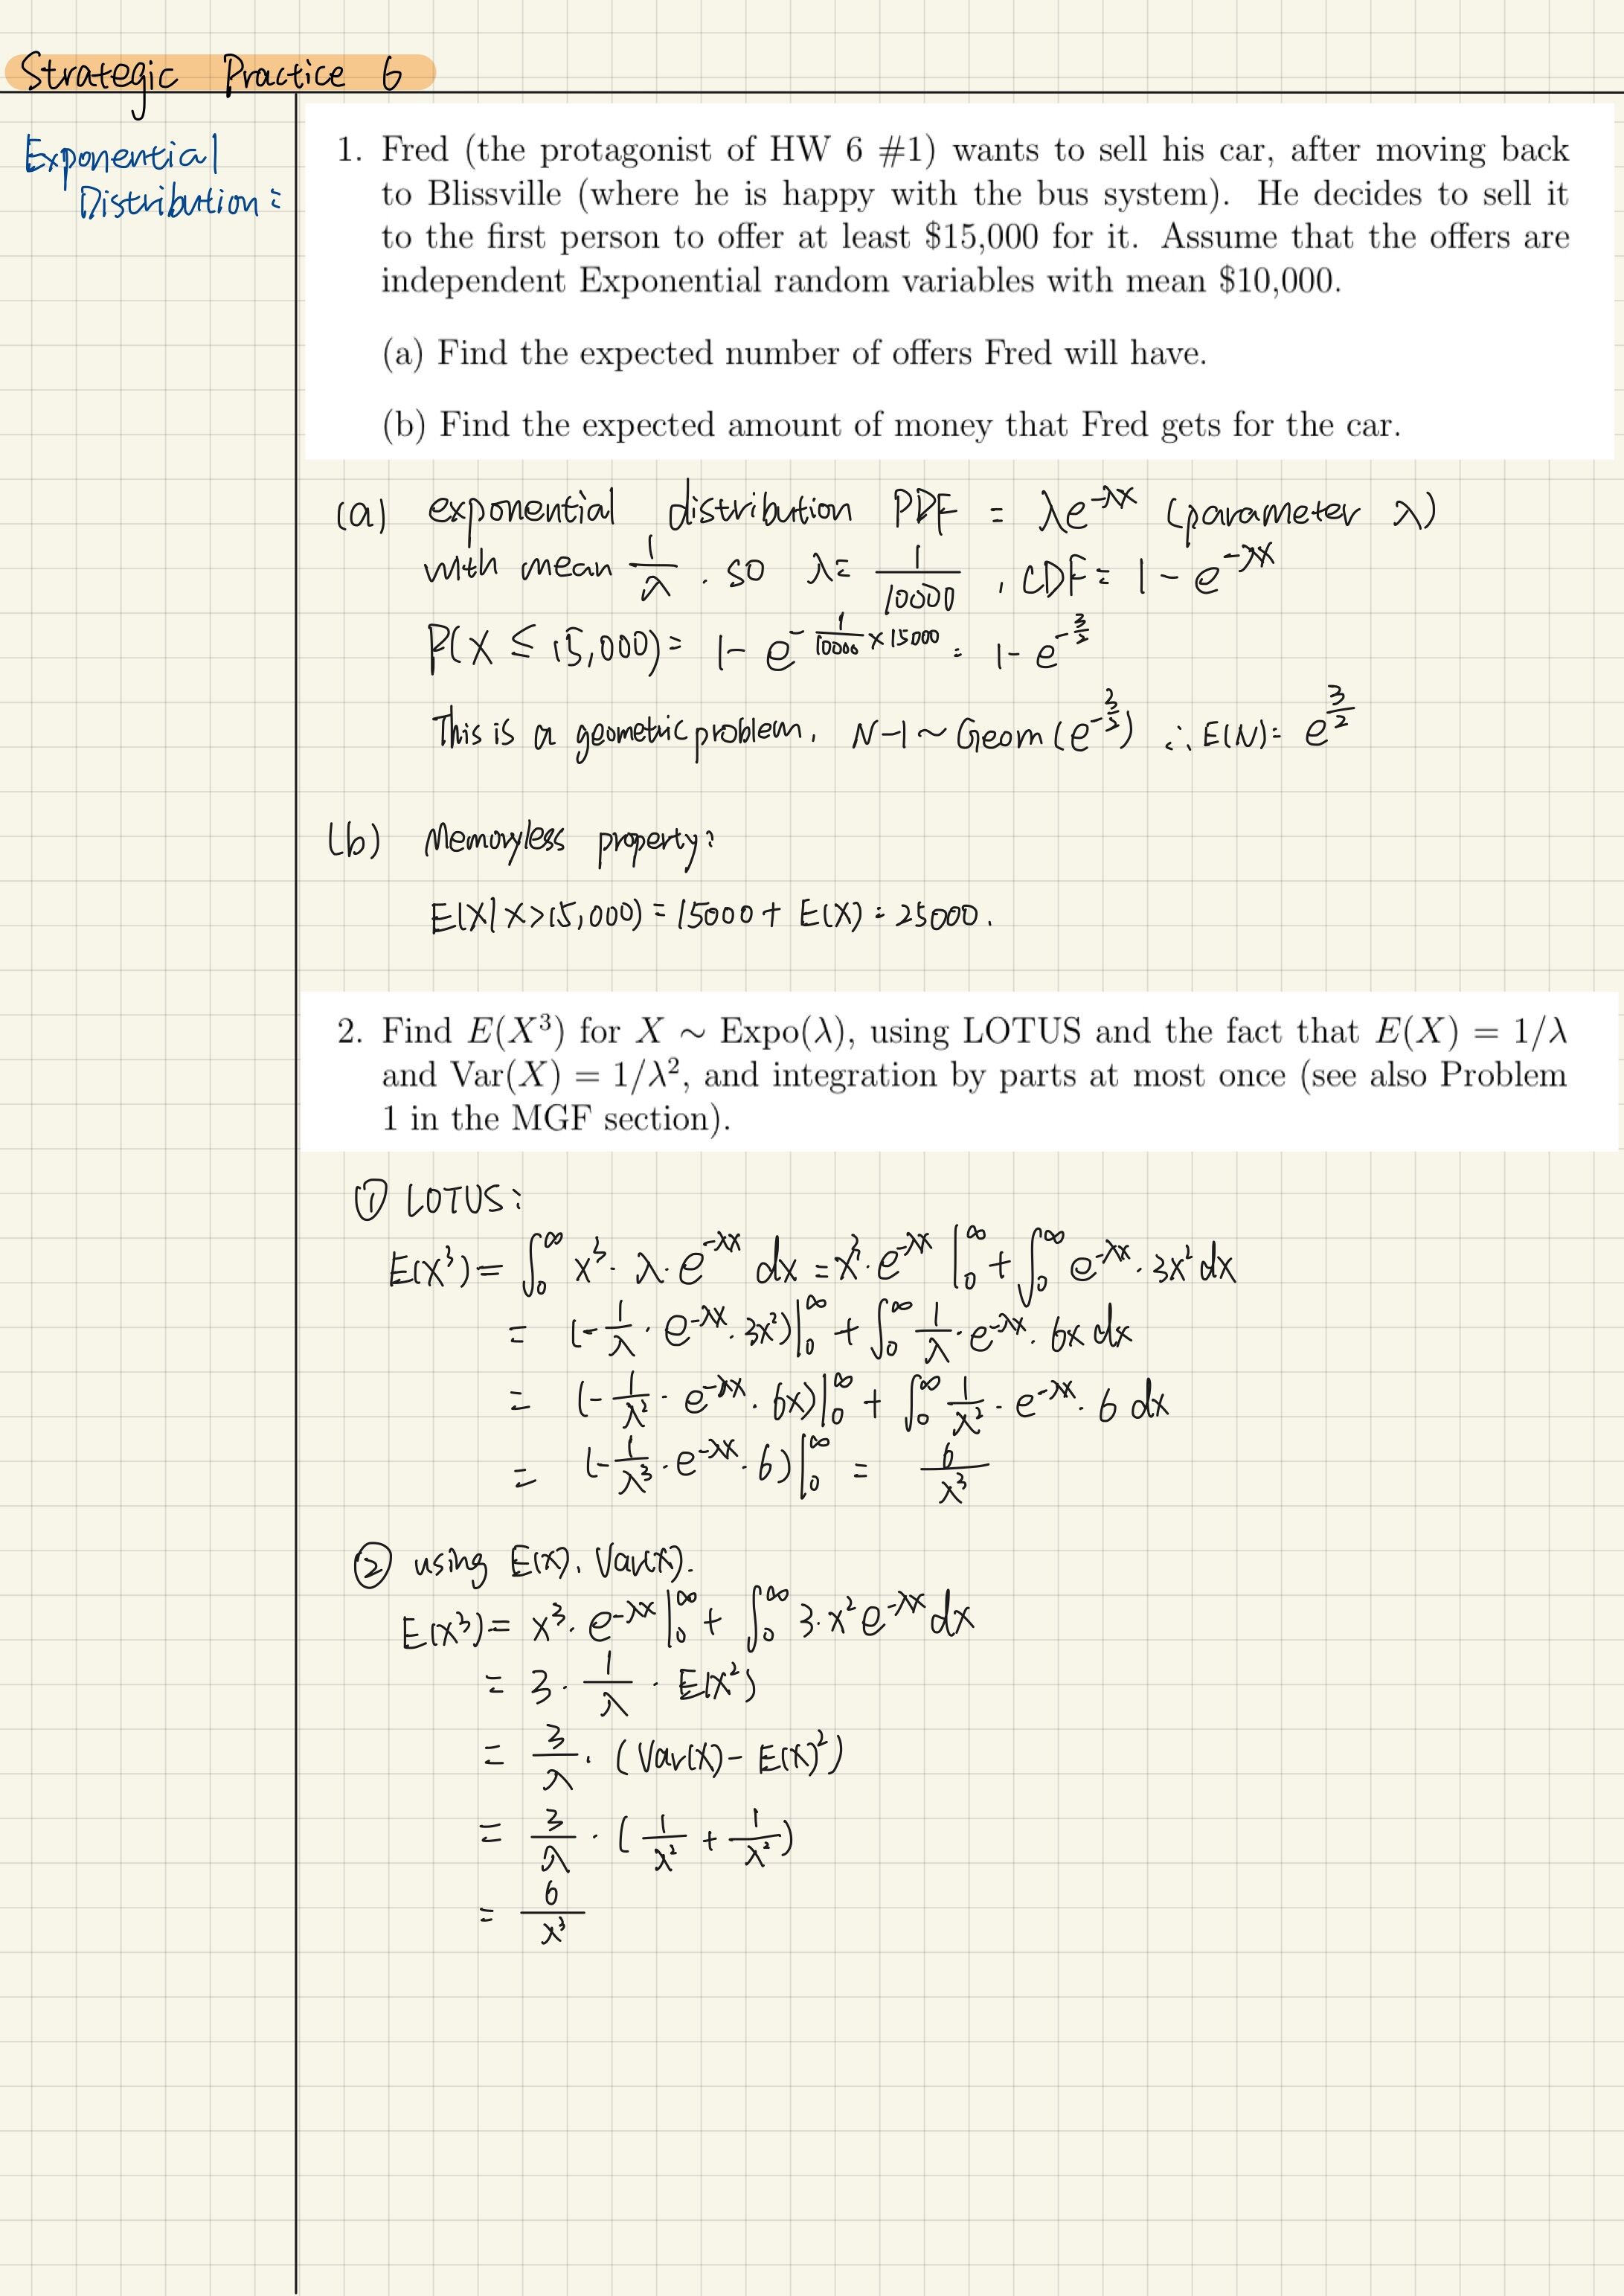 Strategic Practice 6
Exponential
Distribution:
1. Fred (the protagonist of HW 6 #1) wants to sell his car, after moving back
to Blissville (where he is happy with the bus system). He decides to sell it
to the first person to offer at least $15,000 for it. Assume that the offers are
independent Exponential random variables with mean $10,000.
(a) Find the expected number of offers Fred will have.
(b) Find the expected amount of money that Fred gets for the car.
(a) exponential distribution PDF = λe^{-λx} (parameter λ)
with mean 1/λ. so λ = 1/10000, CDF = 1 - e^{-λx}
P(X ≤ 15,000) = 1 - e^{-1/10000 × 15000} = 1 - e^{-3/2}
This is a geometric problem, N-1 ~ Geom(e^{-3/2}) ∴ E(N) = e^{3/2}
(b) Memoryless property:
E(X|X>15,000) = 15000 + E(X) = 25000.
2. Find E(X³) for X ~ Expo(λ), using LOTUS and the fact that E(X) = 1/λ
and Var(X) = 1/λ², and integration by parts at most once (see also Problem
1 in the MGF section).
① LOTUS:
E(X³) = ∫₀^∞ x³ · λ · e^{-λx} dx = x³ · e^{-λx} |₀^∞ + ∫₀^∞ e^{-λx} · 3x² dx
= (-1/λ · e^{-λx} · 3x²)|₀^∞ + ∫₀^∞ 1/λ · e^{-λx} · 6x dx
= (-1/λ² · e^{-λx} · 6x)|₀^∞ + ∫₀^∞ 1/λ² · e^{-λx} · 6 dx
= (-1/λ³ · e^{-λx} · 6)|₀^∞ = 6/λ³
② using E(X), Var(X).
E(X³) = x³ · e^{-λx} |₀^∞ + ∫₀^∞ 3 · x² e^{-λx} dx
= 3 · 1/λ · E(X²)
= 3/λ · (Var(X) - E(X)²)
= 3/λ · (1/λ² + 1/λ²)
= 6/λ³